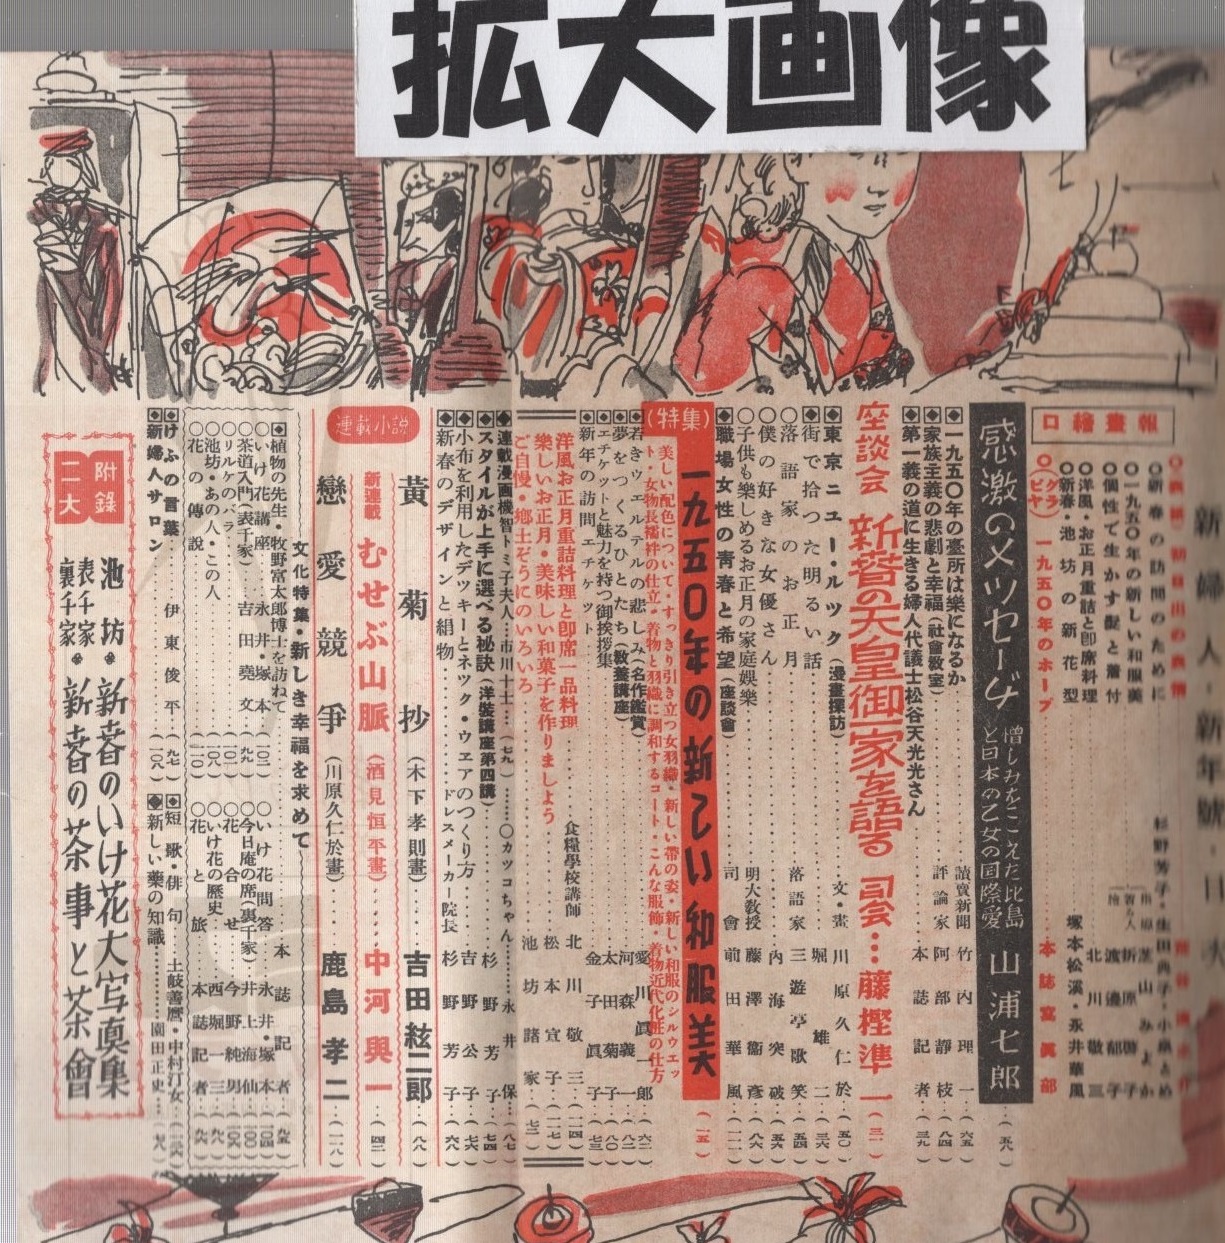 拡大画像
新婦人・新年號・目次
口繪畫報
○新春の訪問のために
○一九五〇年の新しい和服美
○個性で生かす髪と着付
○洋風・お正月重詰と卽席料理
○新春・池坊の新花型
塚本松溪・永井華風
(グラビヤ)
○一九五〇年のホープ
本誌寫眞部
感激のメッセージ
憎しみをこえた比島と日本の乙女の国際愛
山浦七郎
(五八)
◆一九五〇年の臺所は樂になるか
讀賣新聞 竹内理一
◆家族主義の悲劇と幸福(社會敎室)
評論家 阿部靜枝
◆第一義の道に生きる婦人代議士松谷天光光さん
本誌記者
座談会 新春の天皇御家を語る 司会…藤樫準一
◆東京ニユー・ルツク(漫畫探訪)
文・畫 川原久仁於
◆街で拾つた明るい話
堀雄二
○落語家のお正月
落語家 三遊亭歌笑
○僕の好きな女優さん
内海突破
○子供も樂しめるお正月の家庭娯樂
明大敎授 藤澤衞彦
◆職場女性の靑春と希望(座談會)
司會 前田華風
(特集)
一九五〇年の新しい和服美
美しい配色について・すっきり引き立つ女羽織・新しい帶の姿・新しい和服のシルウエット・女物長襦袢の仕立・着物と羽織に調和するコート・こんな服飾・着物近代化粧の仕方
◆若きウエルテルの悲しみ(名作鑑賞)
愛川眞一郎
◆夢をつくるひとたち(敎養講座)
河森義一
◆エチケットと魅力を持つ御挨拶集
太田菊子
◆新年の訪問エチケット
金子眞子
洋風お正月重詰料理と卽席一品料理
食糧學校講師 北川敬三
樂しいお正月・美味しい和菓子を作りましよう
松本宣子
ご自慢・鄕土ぞうにのいろいろ
池坊諸家
◆連載漫画機智トミ子夫人…市川十士…(七九)……○カツコちゃん……永井保(八七)
◆スタイルが上手に選べる秘訣(洋裝講座第四講)
杉野芳子
◆小布を利用したデツキーとネツク・ウエアのつくり方
吉野公子
◆新春のデザインと絹物
ドレスメーカー院長 杉野芳子
連載小説
黃菊抄
(木下孝則畫)
吉田絃二郎
(八八)
新連載
むせぶ山脈
(酒見恒平畫)
中河與一
戀愛競爭
(川原久仁於畫)
鹿島孝二
文化特集・新しき幸福を求めて
◆植物の先生・牧野富太郎博士を訪ねて
本誌記者
○いけ花講座
永井・塚本
○いけ花問答
永井・塚本
○茶道入門(表千家)
吉田堯文
○今日庵の席(裏千家)
井上海仙
○リルケのバラ
○花合せ
今野純男
○池坊・あの人・この人
○いけ花の歷史
西堀一三
○花の傳説
○花と旅
本誌記者
◆けふの言葉
伊東俊平
(九七)
◆短歌・俳句
土鼓善麿・中村汀女
◆新婦人サロン
◆新しい藥の知識
園田正史
二大附錄
池坊・新春のいけ花大写真集
表千家・裏千家・新春の茶事と茶會